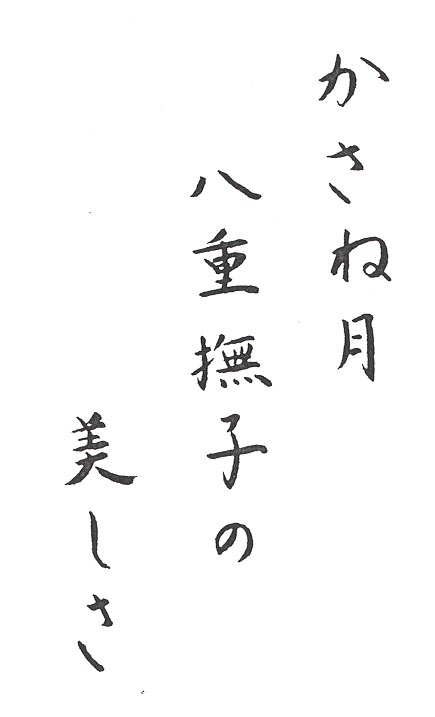 かさね月
八重撫子の
美しさ